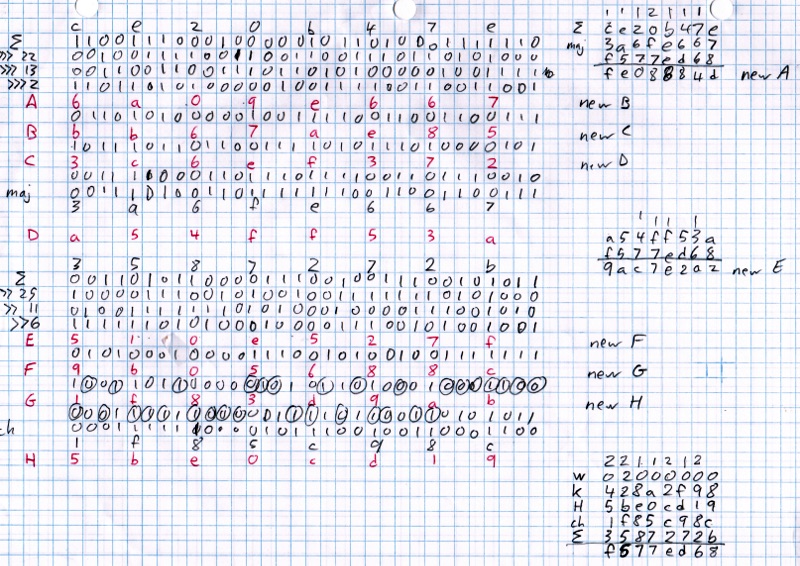 c e 2 0 b 4 7 e
Σ 1 1 0 0 1 1 1 0 0 0 1 0 0 0 0 0 1 0 1 1 0 1 0 0 0 1 1 1 1 1 1 0
>>> 22 0 0 1 0 0 1 1 1 1 0 0 1 1 0 0 1 1 0 0 1 1 1 0 1 1 0 1 0 1 0 0 0
>>> 13 0 0 1 1 0 0 1 1 0 0 1 1 1 0 1 1 0 1 0 1 0 0 0 0 0 1 0 0 1 1 1 1
>>> 2 1 1 0 1 1 0 1 0 1 0 0 0 0 0 1 0 0 1 1 1 1 0 0 1 1 0 0 1 1 0 0 1
A 6 a 0 9 e 6 6 7
0 1 1 0 1 0 1 0 0 0 0 0 1 0 0 1 1 1 1 0 0 1 1 0 0 1 1 0 0 1 1 1
B b b 6 7 a e 8 5
1 0 1 1 1 0 1 1 0 1 1 0 0 1 1 1 1 0 1 0 1 1 1 0 1 0 0 0 0 1 0 1
C 3 c 6 e f 3 7 2
0 0 1 1 1 1 0 0 0 1 1 0 1 1 1 0 1 1 1 1 0 0 1 1 0 1 1 1 0 0 1 0
maj 0 0 1 1 1 0 1 0 0 1 1 0 1 1 1 1 1 1 1 0 0 1 1 0 0 1 1 0 0 1 1 1
3 a 6 f e 6 6 7
D a 5 4 f f 5 3 a
3 5 8 7 2 7 2 b
Σ 0 0 1 1 0 1 0 1 1 0 0 0 0 1 1 1 0 0 1 0 0 1 1 1 0 0 1 0 1 0 1 1
>> 25 1 0 0 0 0 1 1 1 0 0 1 0 1 0 0 1 0 0 1 1 1 1 1 1 1 0 1 0 1 0 0 0
>> 11 0 1 0 0 1 1 1 1 1 1 1 0 1 0 1 0 0 0 1 0 0 0 0 1 1 1 0 0 1 0 1 0
>>6 1 1 1 1 1 1 0 1 0 1 0 0 0 1 0 0 0 0 1 1 1 0 0 1 0 1 0 0 1 0 0 1
E 5 1 0 e 5 2 7 f
0 1 0 1 0 0 0 1 0 0 0 0 1 1 1 0 0 1 0 1 0 0 1 0 0 1 1 1 1 1 1 1
F 9 b 0 5 6 8 8 c
1 0 0 1 1 0 1 1 0 0 0 0 0 1 0 1 0 1 1 0 1 0 0 0 1 0 0 0 1 1 0 0
G 1 f 8 3 d 9 a b
0 0 0 1 1 1 1 1 1 0 0 0 0 0 1 1 1 1 0 1 1 0 0 1 1 0 1 0 1 0 1 1
ch 0 0 0 1 1 1 1 1 1 0 0 0 0 1 0 1 1 1 0 0 1 0 0 1 1 0 0 0 1 1 0 0
1 f 8 5 c 9 8 c
H 5 b e 0 c d 1 9
1 1 1 2 1 1 1
Σ c e 2 0 b 4 7 e
maj 3 a 6 f e 6 6 7
f 5 7 7 e d 6 8
f e 0 8 8 8 4 d new A
new B
new C
new D
1 1 1 1
a 5 4 f f 5 3 a
f 5 7 7 e d 6 8
9 a c 7 e 2 a 2 new E
new F
new G
new H
2 2 1 1 2 1 2
w 0 2 0 0 0 0 0 0
k 4 2 8 a 2 f 9 8
H 5 b e 0 c d 1 9
ch 1 f 8 5 c 9 8 c
Σ 3 5 8 7 2 7 2 b
f 5 7 7 e d 6 8